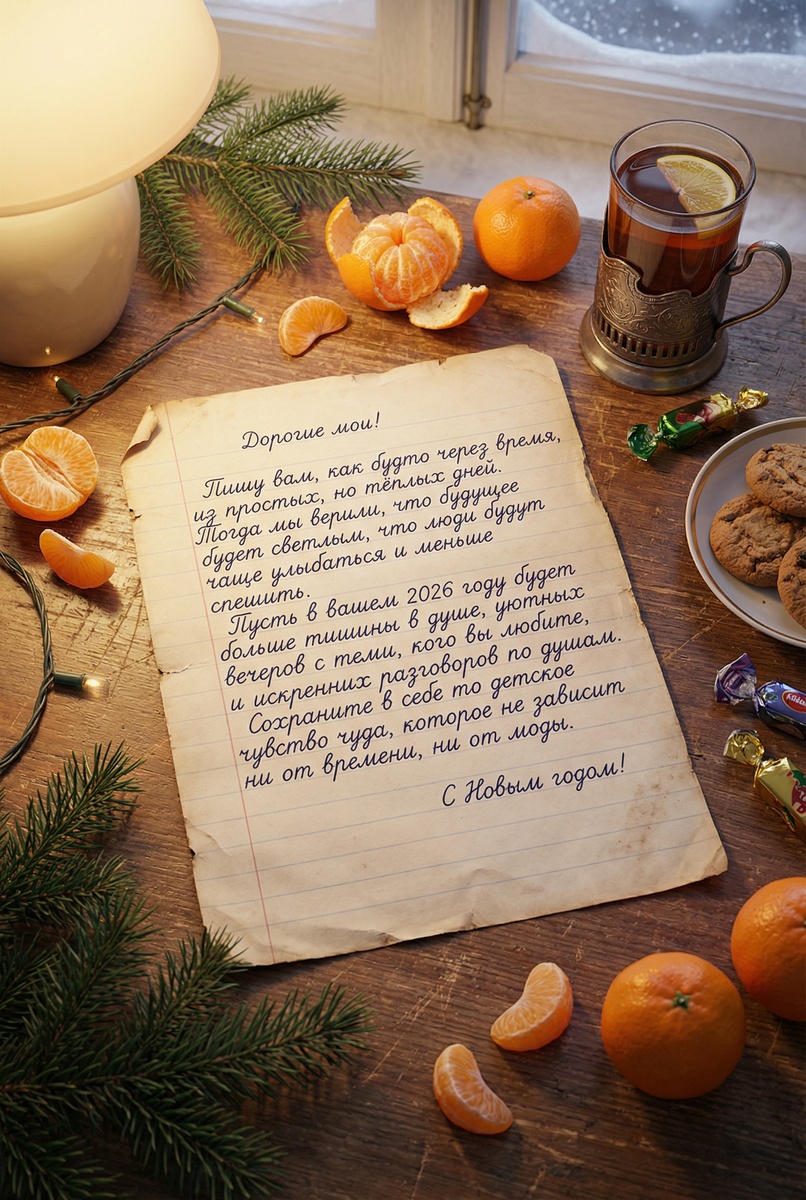 Дорогие мои!
Пишу вам, как будто через время,
из простых, но тёплых дней.
Тогда мы верили, что будущее
будет светлым, что люди будут
чаще улыбаться и меньше
спешить.
Пусть в вашем 2026 году будет
больше тишины в душе, уютных
вечеров с теми, кого вы любите,
и искренних разговоров по душам.
Сохраните в себе то детское
чувство чуда, которое не зависит
ни от времени, ни от моды.
С Новым годом!